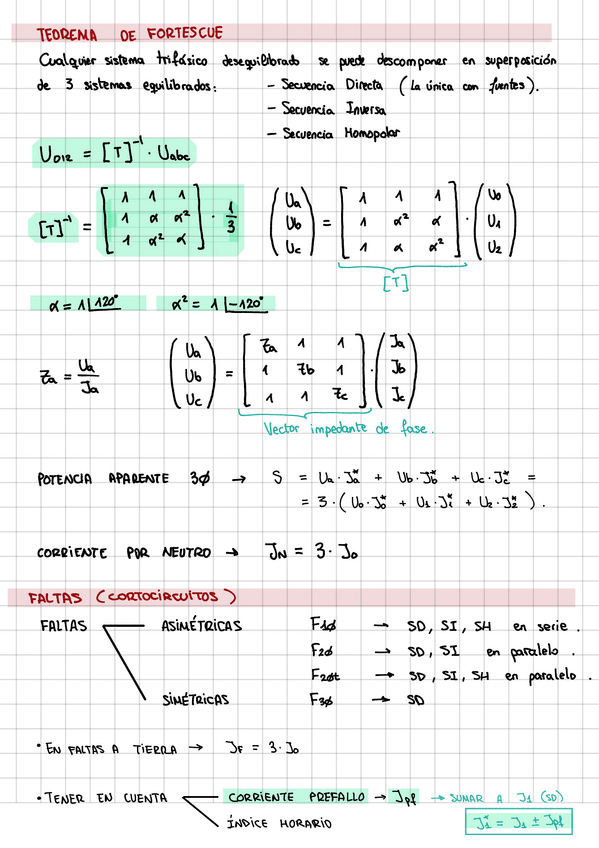 TEOREMA DE FORTESCUE
Cualquier sistema trifásico desequilibrado se puede descomponer en superposición
de 3 sistemas equilibrados: - Secuencia Directa (La única con fuentes).
- Secuencia Inversa
- Secuencia Homopolar
U012 = [T]⁻¹ · Uabc
[T]⁻¹ = [1 1 1; 1 α α²; 1 α² α] · 1/3 (Ua; Ub; Uc) = [1 1 1; 1 α² α; 1 α α²] · (U0; U1; U2)
[T]
α = 1∠120° α² = 1∠-120°
Za = Ua/Ja (Ua; Ub; Uc) = [Za 1 1; 1 Zb 1; 1 1 Zc] · (Ja; Jb; Jc)
Vector impedante de fase.
POTENCIA APARENTE 3ϕ → S = Ua·Ja* + Ub·Jb* + Uc·Jc* =
= 3·(U0·J0* + U1·J1* + U2·J2*).
CORRIENTE POR NEUTRO → JN = 3·J0
FALTAS (CORTOCIRCUITOS)
FALTAS ASIMÉTRICAS F1ϕ → SD, SI, SH en serie.
F2ϕ → SD, SI en paralelo.
F2ϕt → SD, SI, SH en paralelo.
SIMÉTRICAS F3ϕ → SD
· EN FALTAS A TIERRA → JF = 3·J0
· TENER EN CUENTA CORRIENTE PREFALLO → Jpf → SUMAR A J1 (SD)
ÍNDICE HORARIO J1* = J1 ± Jpf